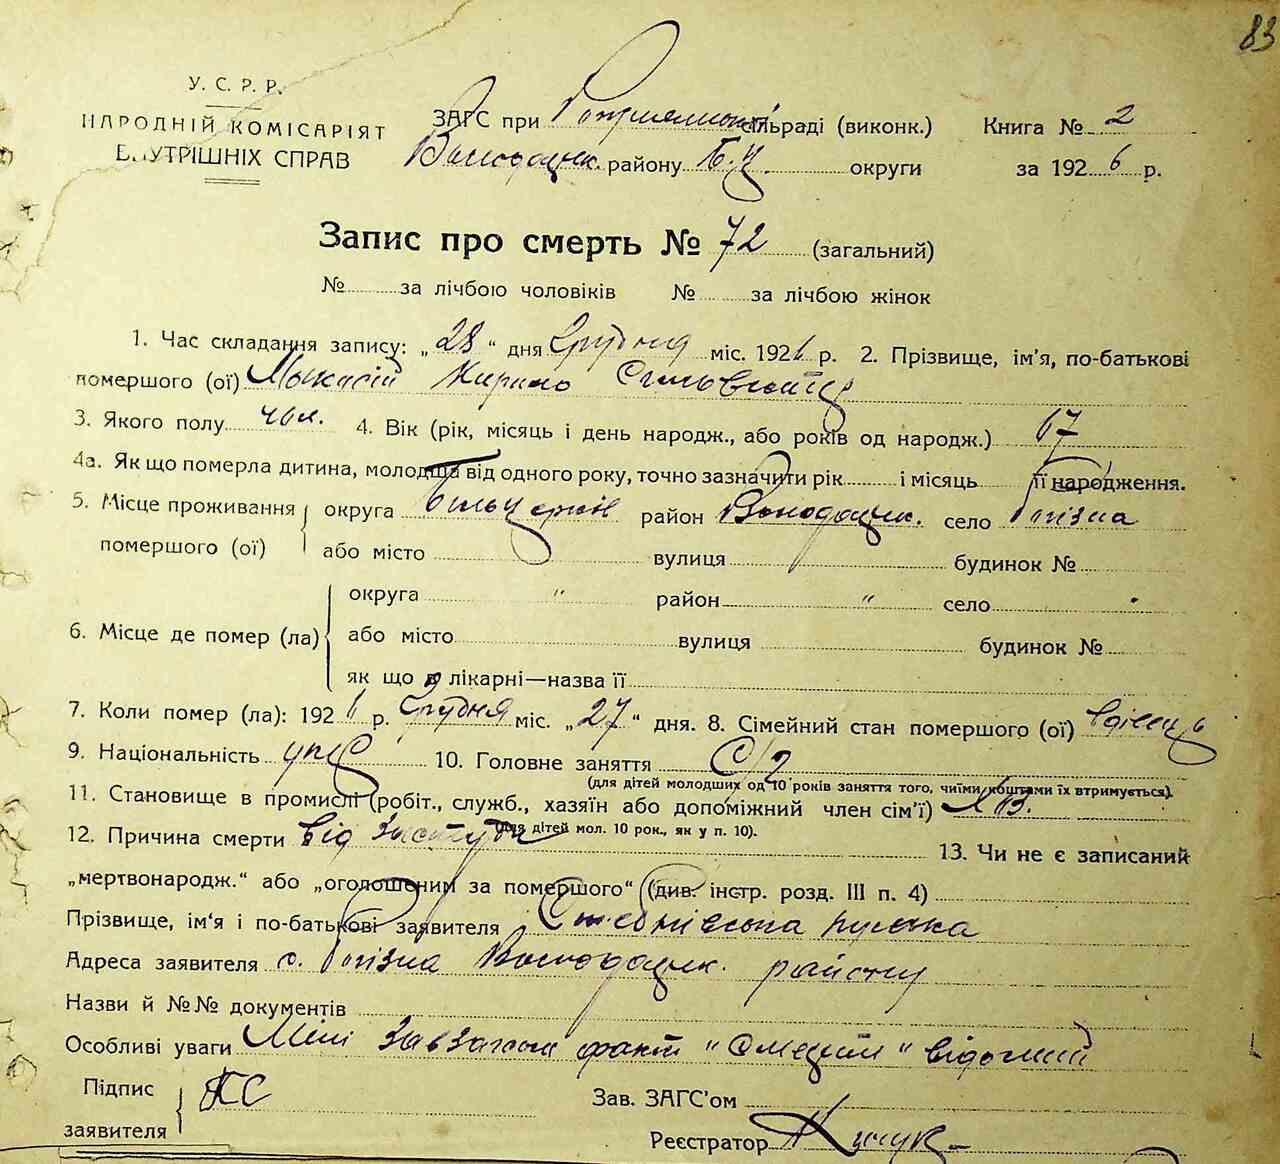 83
У. С. Р. Р.
НАРОДНІЙ КОМІСАРІЯТ
ВНУТРІШНІХ СПРАВ
ЗАГС при сільраді (виконк.) Книга № 2
Володарськ. району Б.Ц. округи за 1926 р.
Запис про смерть № 72 (загальний)
№ за лічбою чоловіків № за лічбою жінок
1. Час складання запису: „28“ дня Грудня міс. 1926 р. 2. Прізвище, ім'я, по-батькові
помершого (ої)
3. Якого полу чол. 4. Вік (рік, місяць і день народж., або років од народж.) 67
4а. Як що померла дитина, молодша від одного року, точно зазначити рік і місяць її народження.
5. Місце проживання округа район Володарськ. село
помершого (ої) або місто вулиця будинок №
округа " район " село
6. Місце де помер (ла) або місто вулиця будинок №
як що в лікарні—назва її
7. Коли помер (ла): 1926 р. Грудня міс. „27“ дня. 8. Сімейний стан помершого (ої) вдівець
9. Національність укр 10. Головне заняття С/г
(для дітей молодших од 10 років заняття того, чиїми коштами їх втримується).
11. Становище в промислі (робіт., служб., хазяїн або допоміжний член сім'ї) хаз.
(для дітей мол. 10 рок., як у п. 10).
12. Причина смерти від 13. Чи не є записаний
„мертвонародж.“ або „оголошеним за помершого“ (див. інстр. розд. III п. 4)
Прізвище, ім'я і по-батькові заявителя
Адреса заявителя с. Володарськ. району
Назви й №№ документів
Особливі уваги факт "смерти" відомий
Підпис
заявителя
Зав. ЗАГС'ом
Реєстратор